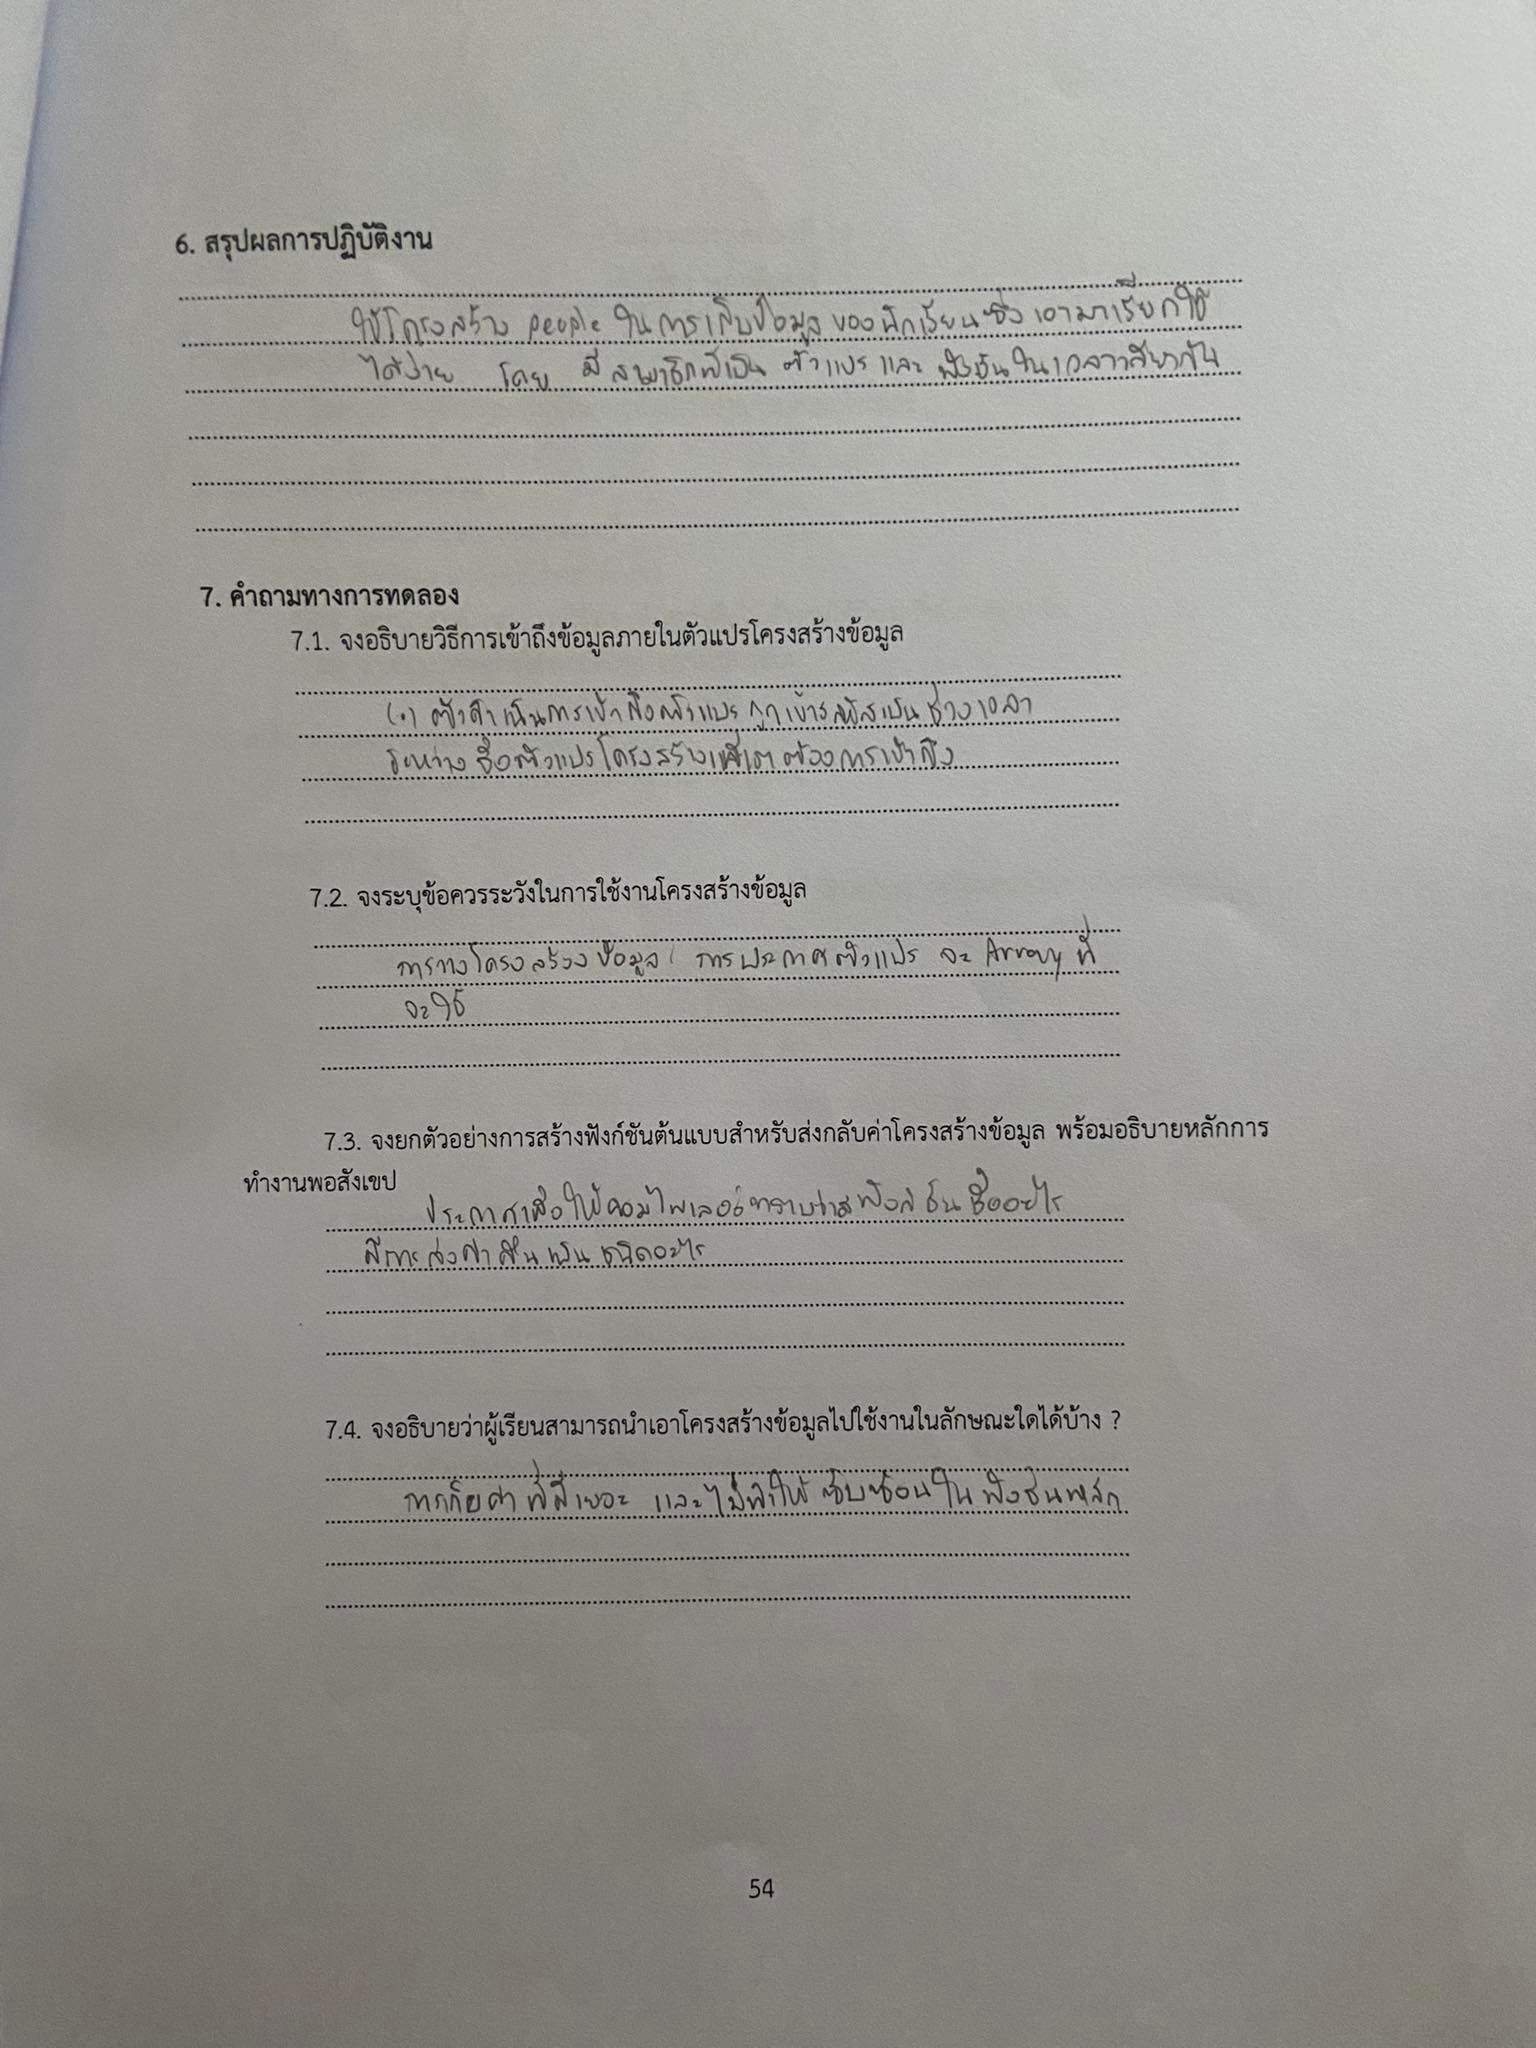 6. สรุปผลการปฏิบัติงาน
ใช้โครงสร้าง people ในการเก็บข้อมูลของนักเรียนซึ่งเอามาเรียกใช้
ได้ง่าย โดย มีสมาชิกที่เป็น ตัวแปร และ ฟังชันในเวลาเดียวกัน
7. คำถามทางการทดลอง
7.1. จงอธิบายวิธีการเข้าถึงข้อมูลภายในตัวแปรโครงสร้างข้อมูล
(.) ตัวดำเนินการเข้าถึงตัวแปร ถูกเข้ารหัสเป็นช่วงเวลา
ระหว่าง ชื่อตัวแปรโครงสร้างที่เราต้องการเข้าถึง
7.2. จงระบุข้อควรระวังในการใช้งานโครงสร้างข้อมูล
การวางโครงสร้างข้อมูล การประกาศตัวแปร จะ Array ที่
จะใช้
7.3. จงยกตัวอย่างการสร้างฟังก์ชันต้นแบบสำหรับส่งกลับค่าโครงสร้างข้อมูล พร้อมอธิบายหลักการ
ทำงานพอสังเขป
ประกาศเพื่อให้คอมไพเลอร์ทราบว่า ฟังก์ชัน ชื่ออะไร
มีการส่งค่าคืนเป็นชนิดอะไร
7.4. จงอธิบายว่าผู้เรียนสามารถนำเอาโครงสร้างข้อมูลไปใช้งานในลักษณะใดได้บ้าง ?
การเก็บค่าที่มีเยอะ และไม่ทำให้ ซับซ้อนใน ฟังชันหลัก
54